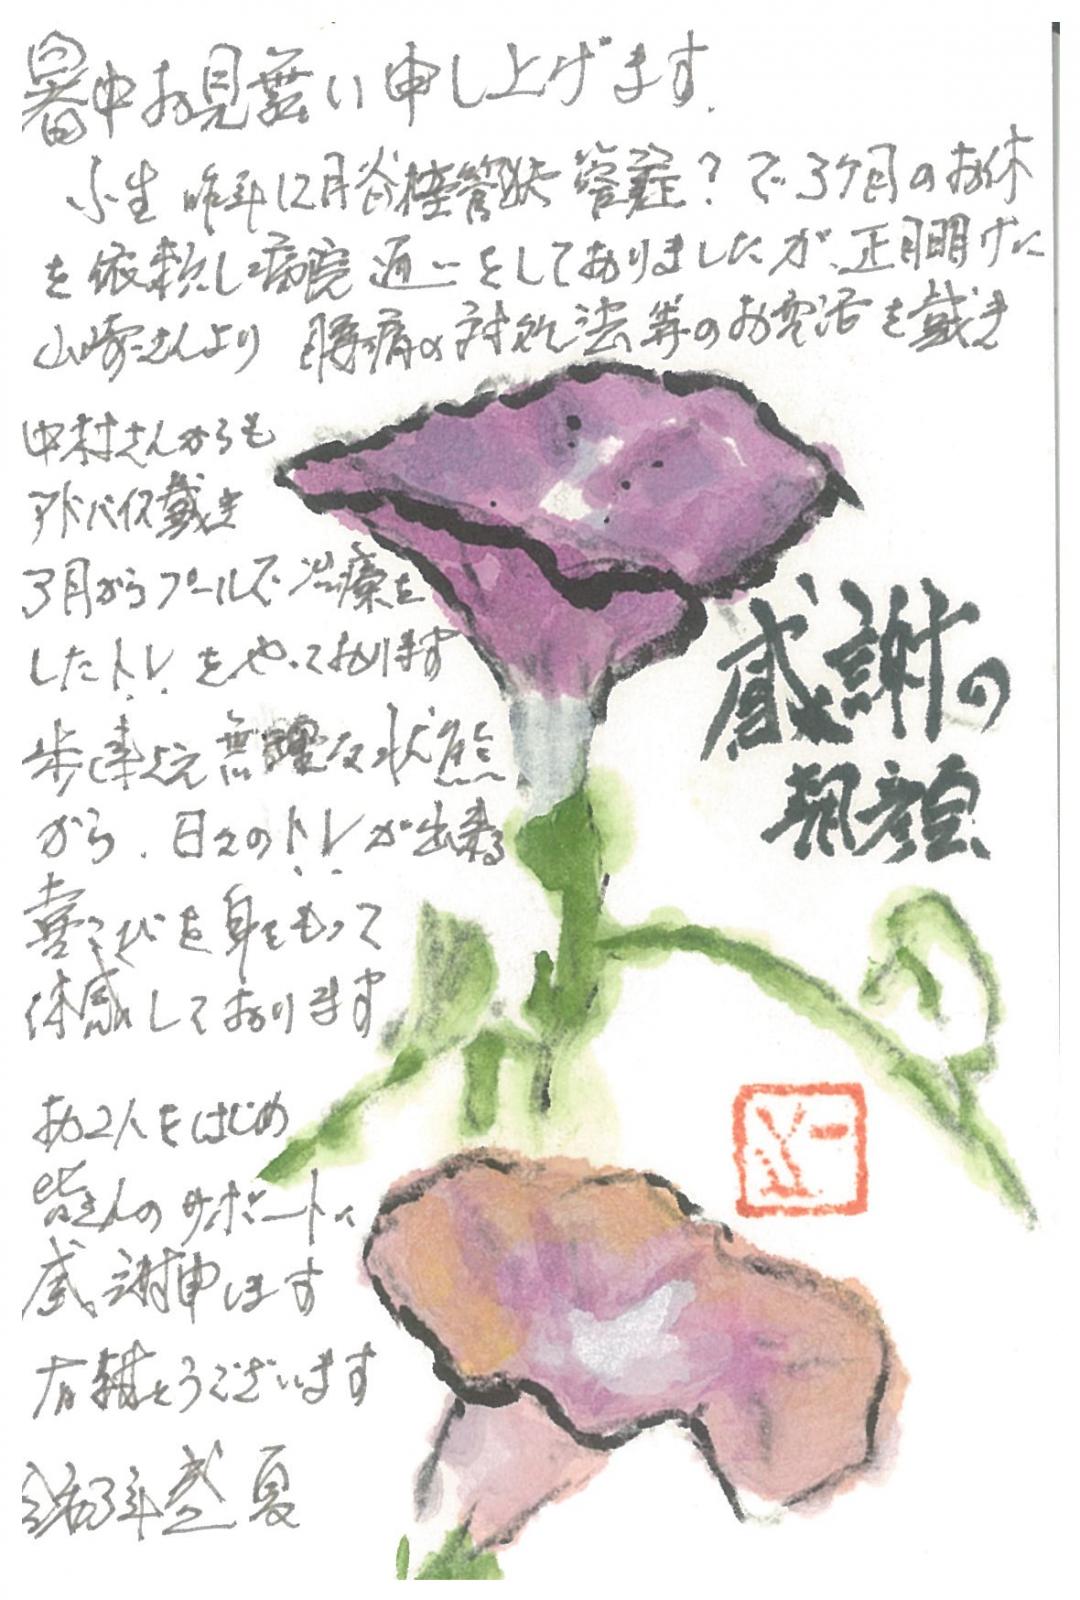 暑中お見舞い申し上げます.
小生 昨年12月脊椎管狭窄症?で3ケ月のお休
を依頼し病院通いをしておりましたが、正月明けに
山崎さんより 腰痛の対処法等のお電話を戴き
中村さんからも
アドバイス戴き
3月からプールで治療を
したトレをやっております
歩く事さえ無理な状態
から、日々のトレが出来る
喜こびを身をもって
体感しております
お2人をはじめ
皆さんのサポートに
感謝申します
有難とうございます
令和3年盛夏
感謝の
朝顔